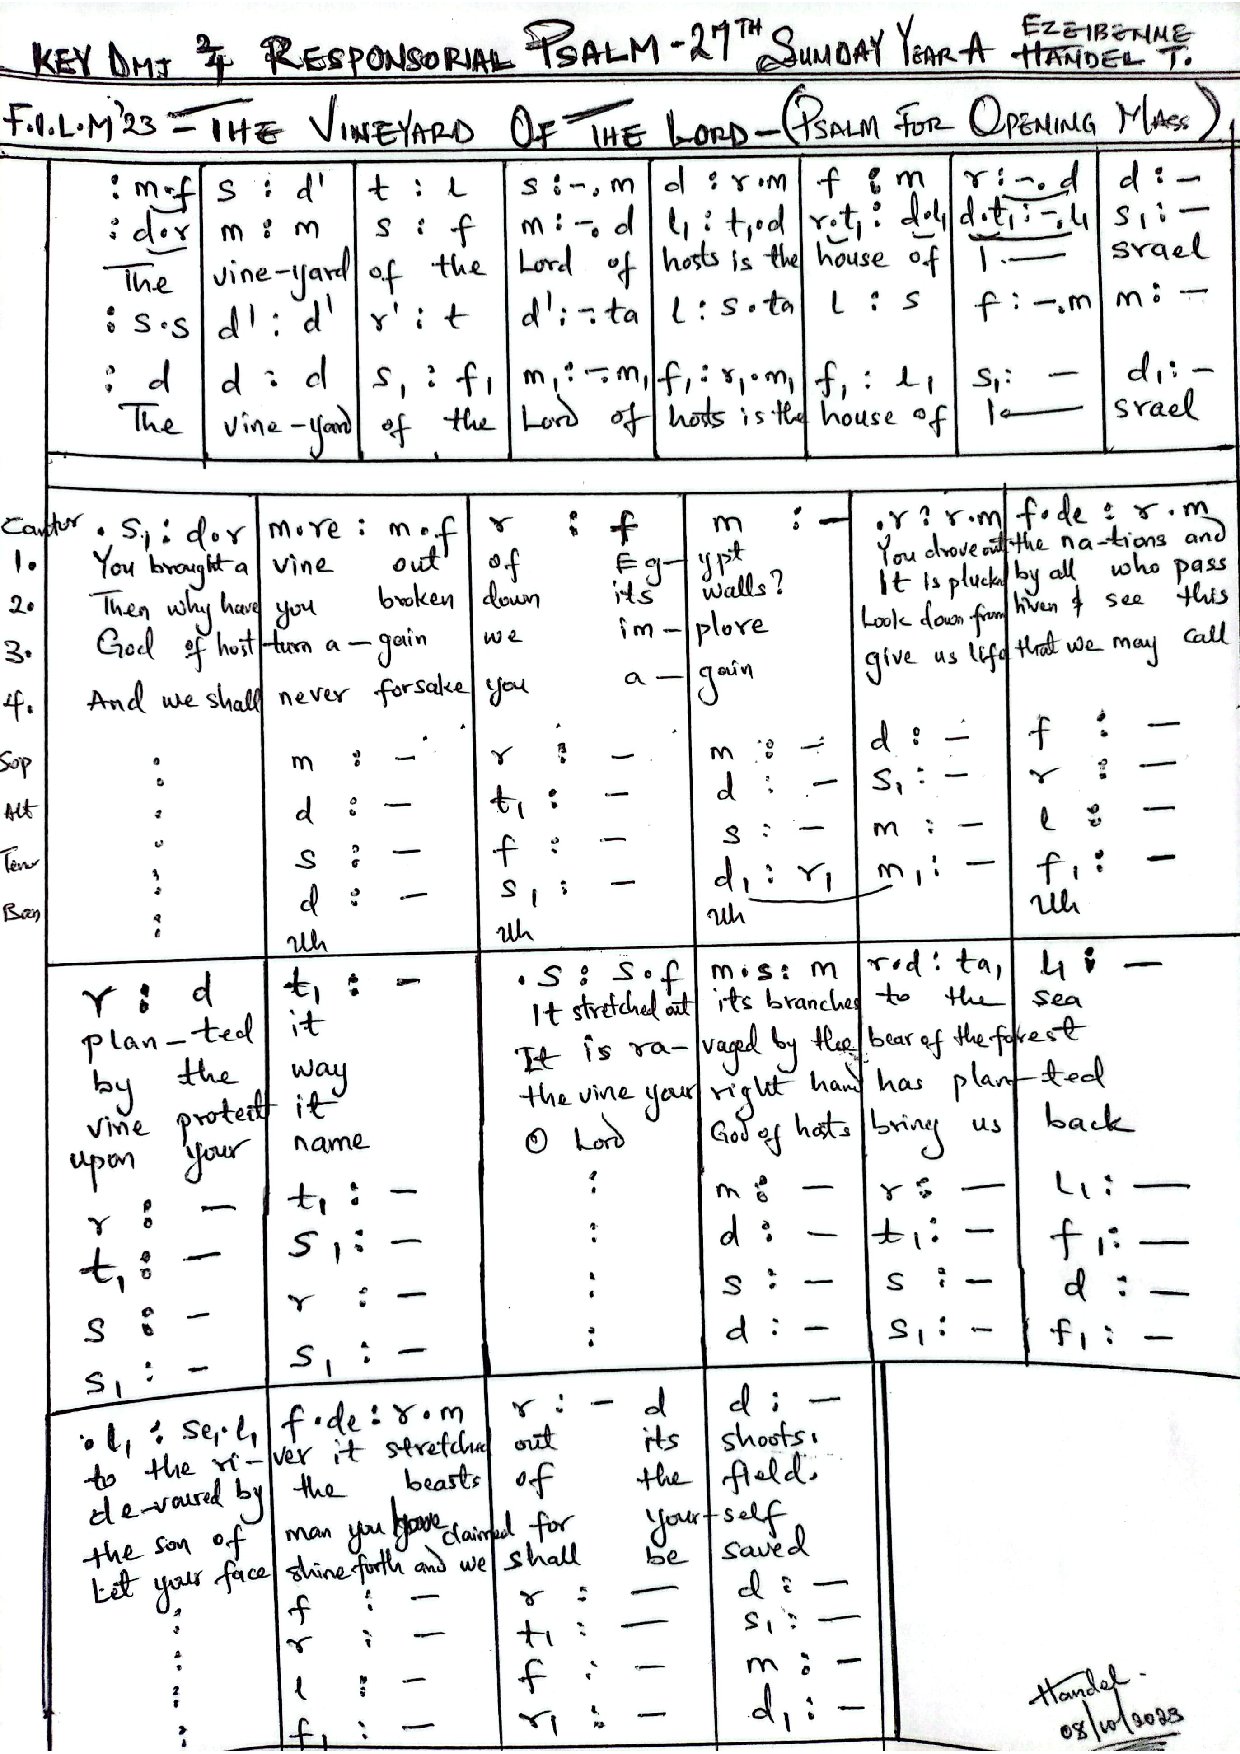 KEY DMJ 2/4 RESPONSORIAL PSALM - 27TH SUNDAY YEAR A EZEIBENNE HANDEL T.
F.O.L.M'23 - THE VINEYARD OF THE LORD - (PSALM FOR OPENING MASS)
: m.f | s : d' | t : l | s : -. m | d : r.m | f : m | r : -. d | d : -
: d.r | m : m | s : f | m : -. d | l₁ : t₁.d | r.t₁ : d.l₁ | d.t₁ : -. l₁ | s₁ : -
The vine-yard of the Lord of hosts is the house of I — srael
: s.s | d' : d' | r' : t | d' : -. ta | l : s.ta | l : s | f : -. m | m : -
: d | d : d | s₁ : f₁ | m₁ : -. m₁ | f₁ : r₁.m₁ | f₁ : l₁ | s₁ : - | d₁ : -
The vine-yard of the Lord of hosts is the house of I — srael
Cantor . s₁ : d.r | m.re : m.f | r : f | m : - | .r : r.m | f.de : r.m
1. You brought a vine out of Eg-ypt You drove out the na-tions and
2. Then why have you broken down its walls? It is plucked by all who pass
3. God of host turn a-gain we im-plore Look down from hiven & see this
4. And we shall never forsake you a-gain give us life that we may call
Sop : | m : - | r : - | m : - | d : - | f : -
Alt : | d : - | t₁ : - | d : - | s₁ : - | r : -
Tenor : | s : - | f : - | s : - | m : - | l : -
Bass : | d : - | s₁ : - | d₁ : r₁ | m₁ : - | f₁ : -
Uh Uh Uh Uh
r : d | t₁ : - | . s : s.f | m.s : m | r.d : ta₁ | l₁ : -
plan-ted it It stretched out its branches to the sea
by the way It is ra-vaged by the bear of the forest
vine protect it the vine your right hand has plan-ted
upon your name O Lord God of hosts bring us back
r : - | t₁ : - | : | m : - | r : - | l₁ : -
t₁ : - | s₁ : - | : | d : - | t₁ : - | f₁ : -
s : - | r : - | : | s : - | s : - | d : -
s₁ : - | s₁ : - | : | d : - | s₁ : - | f₁ : -
. l₁ : se₁.l₁ | f.de : r.m | r : - d | d : -
to the ri-ver it stretched out its shoots.
de-voured by the beasts of the field.
the son of man you have claimed for your-self
Let your face shine forth and we shall be saved
: | f : - | r : - | d : -
: | r : - | t₁ : - | s₁ : -
: | l : - | f : - | m : -
: | f₁ : - | r₁ : - | d₁ : -
Handel.
08/10/2023